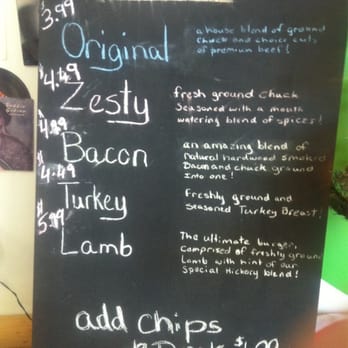 $3.99
Original
a house blend of ground
chuck and choice cuts
of premium beef!
$4.49
Zesty
fresh ground chuck
seasoned with a mouth
watering blend of spices!
$4.99
Bacon
an amazing blend of
natural hardwood smoked
Bacon and chuck ground
into one!
$4.49
Turkey
Freshly ground and
seasoned Turkey Breast!
$5.99
Lamb
The ultimate burger,
comprised of freshly ground
Lamb with hint of our
special Hickory blend!
add chips